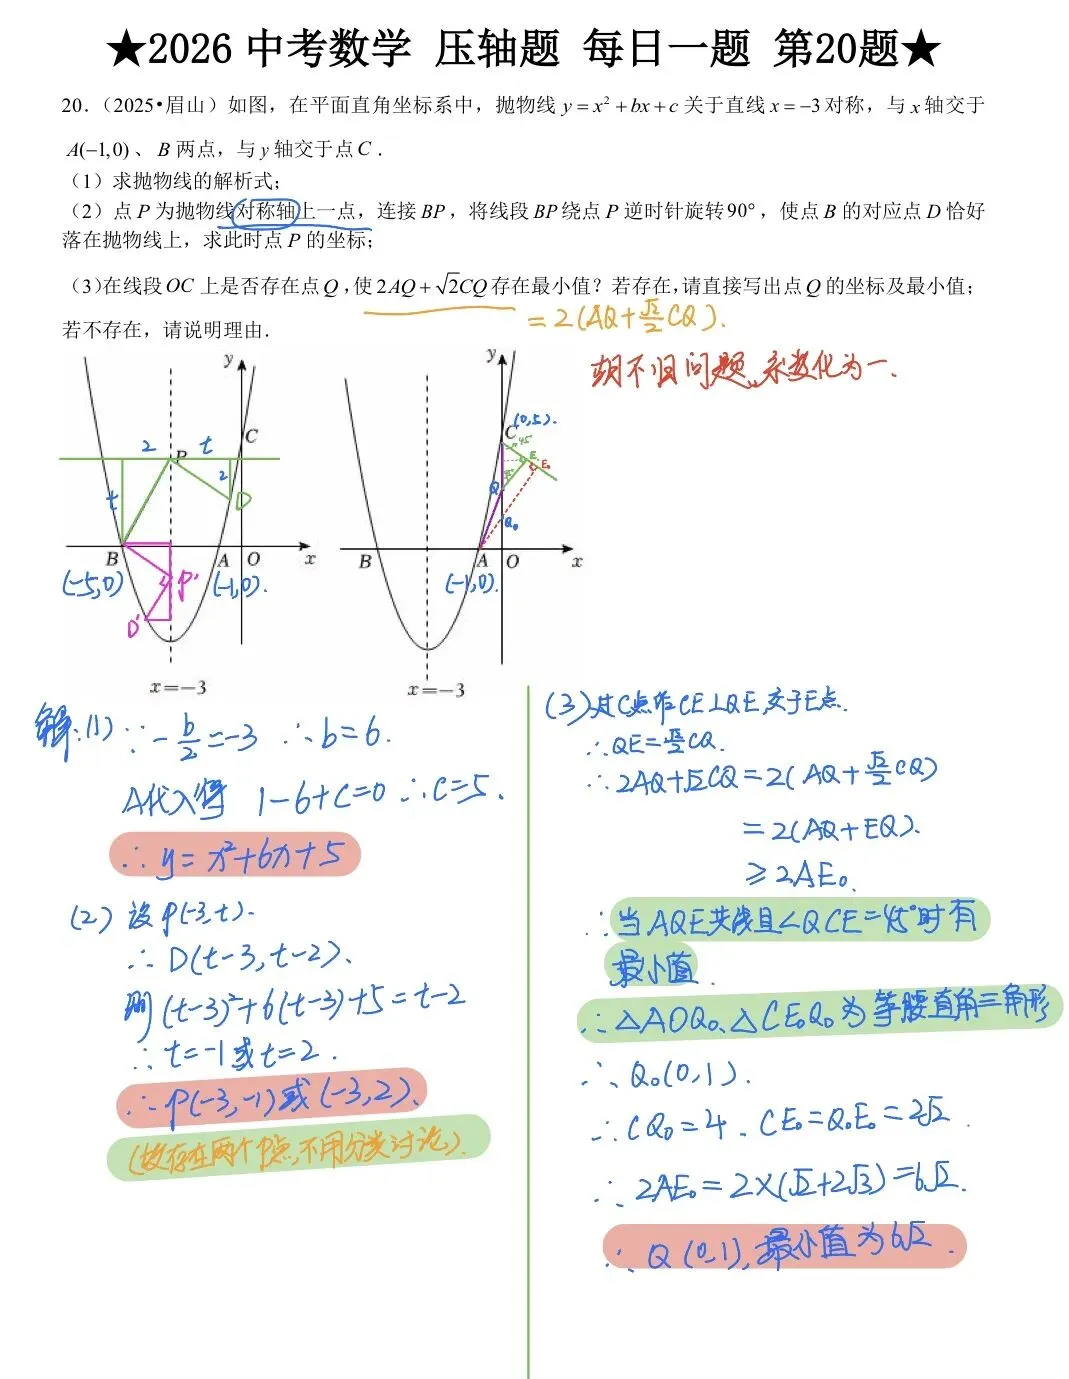 ★2026 中考数学 压轴题 每日一题 第20题★
20.（2025•眉山）如图，在平面直角坐标系中，抛物线 y = x² + bx + c 关于直线 x = −3 对称，与 x 轴交于
A(−1,0) 、 B 两点，与 y 轴交于点 C .
（1）求抛物线的解析式；
（2）点 P 为抛物线对称轴上一点，连接 BP，将线段 BP 绕点 P 逆时针旋转 90°，使点 B 的对应点 D 恰好
落在抛物线上，求此时点 P 的坐标；
（3）在线段 OC 上是否存在点 Q，使 2AQ + √2CQ 存在最小值？若存在，请直接写出点 Q 的坐标及最小值；
= 2(AQ + √2/2 CQ).
若不存在，请说明理由.
胡不归问题，系数化为一.
y
C
2
P
t
t
2
D
B
A
O
x
(-5,0)
P'
(-1,0).
D'
x = −3
y
(0,5).
C
45°
E
E₀
Q
Q₀
B
A
O
x
(-1,0)
x = −3
解:(1) ∵ -b/2 = -3 ∴ b = 6.
A代入得 1-6+c=0 ∴ c=5.
∴ y = x²+6x+5
(2) 设P(-3,t).
∴ D(t-3, t-2).
则 (t-3)²+6(t-3)+5 = t-2
∴ t=-1 或 t=2.
∴ P(-3,-1) 或 (-3,2).
(故存在两个P点,不用分类讨论).
(3) 过C点作CE⊥QE,交于E点.
∴ QE = √2/2 CQ.
∴ 2AQ+√2CQ = 2(AQ + √2/2 CQ)
= 2(AQ+EQ).
≥ 2AE₀.
∴ 当AQE共线且∠QCE=45°时有
最小值.
∴ △AOQ₀、△CE₀Q₀为等腰直角三角形
∴ Q₀(0,1).
∴ CQ₀=4. CE₀=Q₀E₀=2√2.
∴ 2AE₀ = 2×(√2+2√3) = 6√2.
∴ Q(0,1), 最小值为6√2.